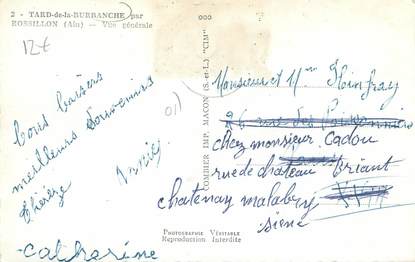 2 - TARD-de-la-BURBANCHE par
ROSSILLON (Ain) — Vue générale
12€
Bons baisers
meilleurs souvenirs
Thérèze
Annie
Catherine
COMBIER IMP. MACON (S.-et-L.) "CIM"
Monsieur et Mme
26
chez monsieur Cadou
rue de chateau Briant
chatenay malabry
siene
PHOTOGRAPHIE VÉRITABLE
Reproduction Interdite